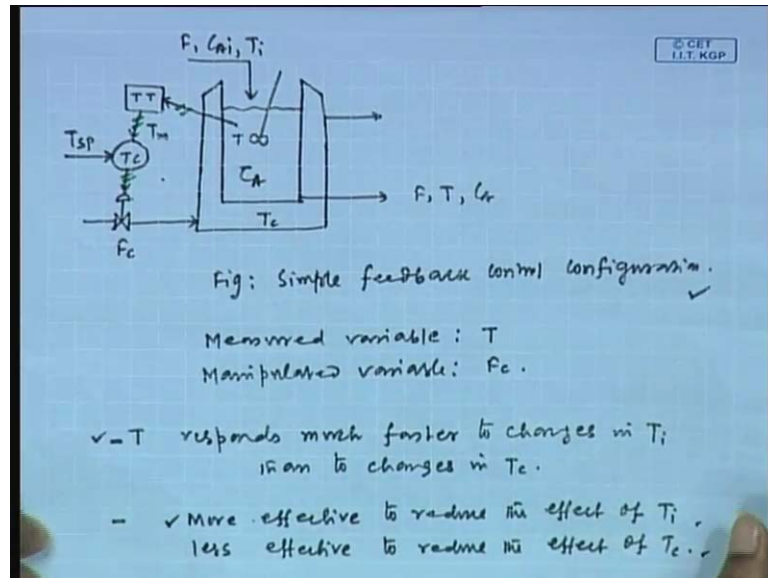 F, CAi, Ti
© CET
I.I.T. KGP
TT
Tm
TSP
TC
T
CA
Tc
Fc
F, T, CA
Fig: Simple feedback control configuration.
Measured variable: T
Manipulated variable: Fc.
- T responds much faster to changes in Ti
than to changes in Tc.
- More effective to reduce the effect of Ti.
less effective to reduce the effect of Tc.